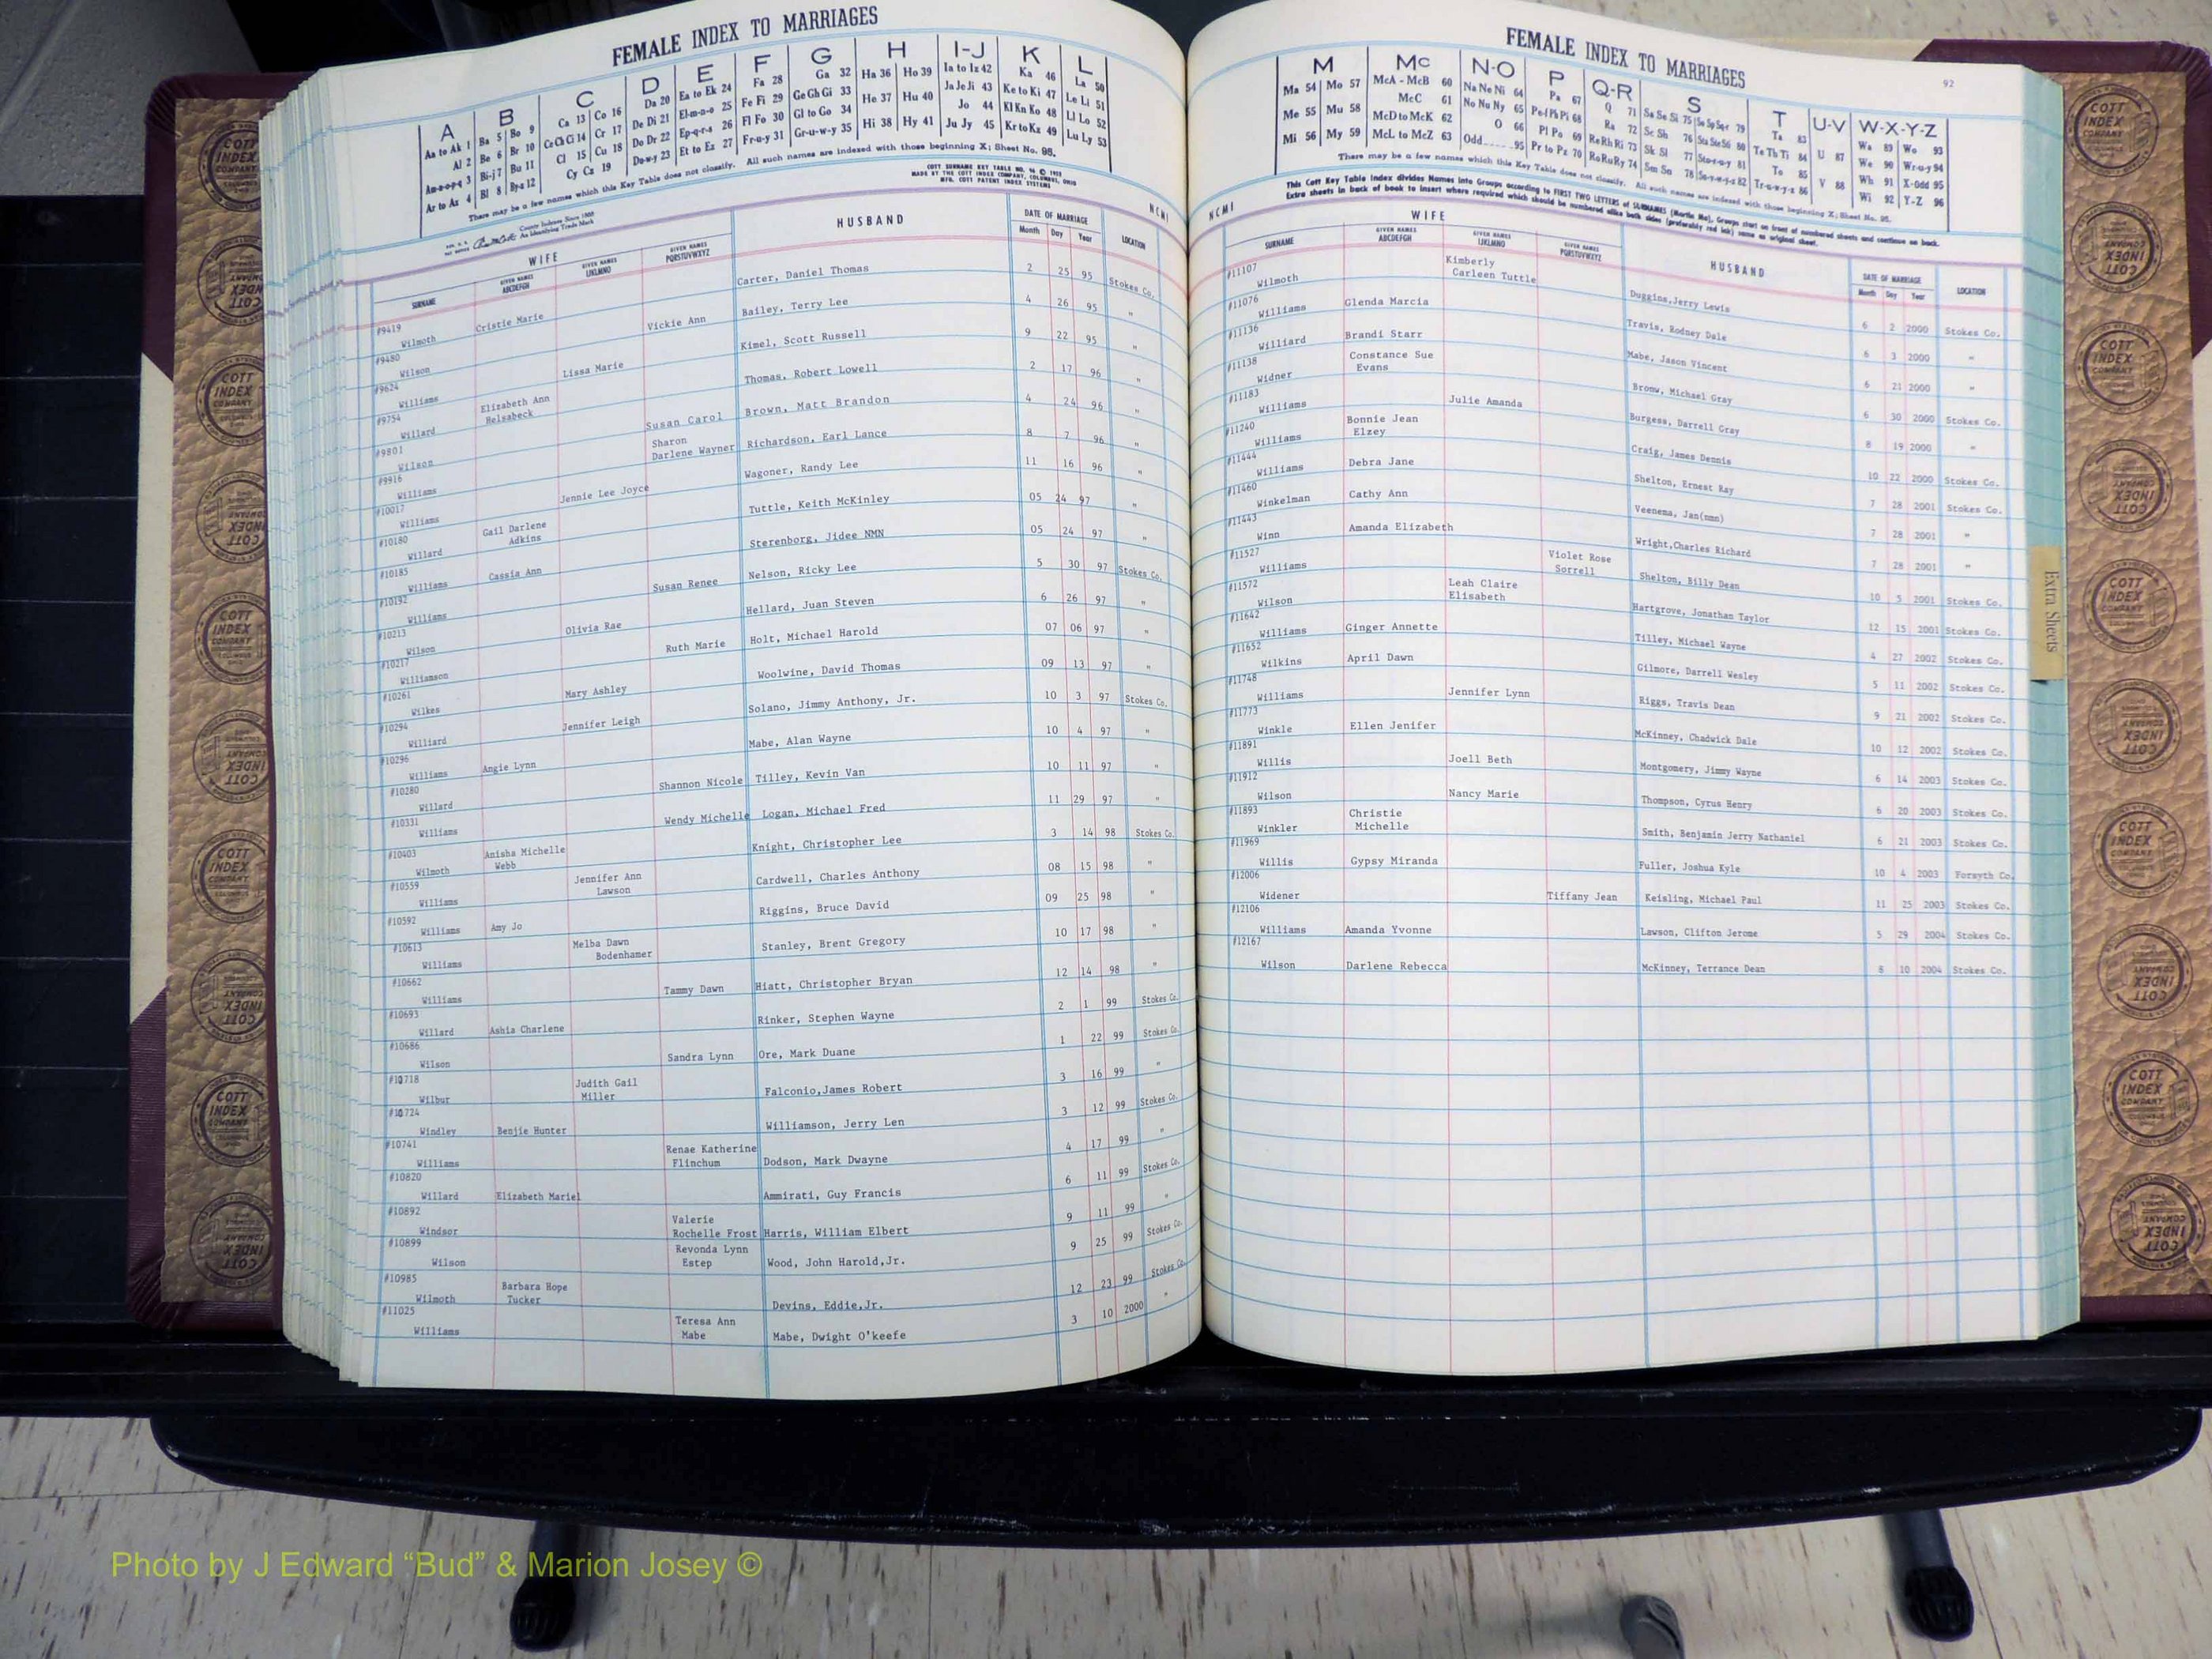 FEMALE INDEX TO MARRIAGES
A B C D E F G H I-J K L
Aa to Ak 1 Ba 5 Bo 9 Ca 13 Co 16 Da 20 Ea to Ek 24 Fa 28 Ga 32 Ha 36 Ho 39 Ia to Iz 42 Ka 46 La 50
Al 2 Be 6 Br 10 Ce Ch Ci 14 Cr 17 De Di 21 El-m-n-o 25 Fe Fi 29 Ge Gh Gi 33 He 37 Hu 40 Ja Je Ji 43 Ke to Ki 47 Le Li 51
Am-n-o-p-q 3 Bi-j 7 Bu 11 Cl 15 Cu 18 Do Dr 22 Ep-q-r-s 26 Fl Fo 30 Gl to Go 34 Hi 38 Hy 41 Jo 44 Kl Kn Ko 48 Ll Lo 52
Ar to Az 4 Bl 8 By-z 12 Cy Cz 19 Du-w-y 23 Et to Ez 27 Fr-u-y 31 Gr-u-w-y 35 Ju Jy 45 Kr to Kz 49 Lu Ly 53
There may be a few names which this Key Table does not classify. All such names are indexed with those beginning X; Sheet No. 95.
COTT SURNAME KEY TABLE NO. 96 © 1951
MADE BY THE COTT INDEX COMPANY, COLUMBUS, OHIO
MFG. COTT PATENT INDEX SYSTEMS
County Indexes Since 1888
An Identifying Trade Mark
NCMI
WIFE HUSBAND DATE OF MARRIAGE LOCATION
SURNAME GIVEN NAMES ABCDEFGH GIVEN NAMES IJKLMNO GIVEN NAMES PQRSTUVWXYZ Month Day Year
#9419 Wilmoth Cristie Marie Carter, Daniel Thomas 2 25 95 Stokes Co.
#9480 Wilson Vickie Ann Bailey, Terry Lee 4 26 95 "
#9624 Williams Lissa Marie Kimel, Scott Russell 9 22 95 "
#9754 Willard Elizabeth Ann Helsabeck Thomas, Robert Lowell 2 17 96 "
#9801 Wilson Susan Carol Brown, Matt Brandon 4 24 96 "
#9916 Williams Sharon Darlene Wayner Richardson, Earl Lance 8 7 96 "
#10017 Williams Jennie Lee Joyce Wagoner, Randy Lee 11 16 96 "
#10180 Willard Gail Darlene Adkins Tuttle, Keith McKinley 05 24 97 "
#10185 Williams Cassia Ann Sterenborg, Jidee NMN 05 24 97 "
#10192 Williams Susan Renee Nelson, Ricky Lee 5 30 97 Stokes Co.
#10213 Wilson Olivia Rae Hellard, Juan Steven 6 26 97 "
#10217 Williamson Ruth Marie Holt, Michael Harold 07 06 97 "
#10261 Wilkes Mary Ashley Woolwine, David Thomas 09 13 97 "
#10294 Williard Jennifer Leigh Solano, Jimmy Anthony, Jr. 10 3 97 Stokes Co.
#10296 Williams Angie Lynn Mabe, Alan Wayne 10 4 97 "
#10280 Willard Shannon Nicole Tilley, Kevin Van 10 11 97 "
#10331 Williams Wendy Michelle Logan, Michael Fred 11 29 97 "
#10403 Wilmoth Anisha Michelle Webb Knight, Christopher Lee 3 14 98 Stokes Co.
#10559 Williams Jennifer Ann Lawson Cardwell, Charles Anthony 08 15 98 "
#10592 Williams Amy Jo Riggins, Bruce David 09 25 98 "
#10613 Williams Melba Dawn Bodenhamer Stanley, Brent Gregory 10 17 98 "
#10662 Williams Tammy Dawn Hiatt, Christopher Bryan 12 14 98 "
#10693 Willard Ashia Charlene Rinker, Stephen Wayne 2 1 99 Stokes Co.
#10686 Wilson Sandra Lynn Ore, Mark Duane 1 22 99 Stokes Co.
#10718 Wilbur Judith Gail Miller Falconio,James Robert 3 16 99 "
#10724 Windley Benjie Hunter Williamson, Jerry Len 3 12 99 Stokes Co.
#10741 Williams Renae Katherine Flinchum Dodson, Mark Dwayne 4 17 99 "
#10820 Willard Elizabeth Mariel Ammirati, Guy Francis 6 11 99 Stokes Co.
#10892 Windsor Valerie Rochelle Frost Harris, William Elbert 9 11 99 "
#10899 Wilson Revonda Lynn Estep Wood, John Harold,Jr. 9 25 99 Stokes Co.
#10985 Wilmoth Barbara Hope Tucker Devins, Eddie,Jr. 12 23 99 Stokes Co.
#11025 Williams Teresa Ann Mabe Mabe, Dwight O'keefe 3 10 2000 "
FEMALE INDEX TO MARRIAGES
92
M Mc N-O P Q-R S T U-V W-X-Y-Z
Ma 54 Mo 57 McA - McB 60 Na Ne Ni 64 Pa 67 Q 71 Sa Se Si 75 So Sp Sq-r 79 Ta 83 Wa 89 Wo 93
Me 55 Mu 58 McC 61 No Nu Ny 65 Pe-f Ph Pi 68 Ra 72 Sc Sh 76 Sta Ste Sti 80 Te Th Ti 84 U 87 We 90 Wr-u-y 94
Mi 56 My 59 McD to McK 62 O 66 Pl Po 69 Re Rh Ri 73 Sk Sl 77 Sto-r-u-y 81 To 85 V 88 Wh 91 X-Odd 95
McL to McZ 63 Odd 95 Pr to Pz 70 Ro Ru Ry 74 Sm Sn 78 Su-v-w-y-z 82 Tr-u-w-y-z 86 Wi 92 Y-Z 96
There may be a few names which this Key Table does not classify. All such names are indexed with those beginning X; Sheet No. 95.
This Cott Key Table Index divides Names into Groups according to FIRST TWO LETTERS of SURNAMES (Martin Ma). Groups start on front of numbered sheets and continue on back.
Extra sheets in back of book to insert where required which should be numbered alike both sides (preferably red ink) same as original sheet.
NCMI
WIFE HUSBAND DATE OF MARRIAGE LOCATION
SURNAME GIVEN NAMES ABCDEFGH GIVEN NAMES IJKLMNO GIVEN NAMES PQRSTUVWXYZ Month Day Year
#11107 Wilmoth Kimberly Carleen Tuttle Duggins,Jerry Lewis 6 2 2000 Stokes Co.
#11076 Williams Glenda Marcia Travis, Rodney Dale 6 3 2000 "
#11136 Williard Brandi Starr Mabe, Jason Vincent 6 21 2000 "
#11138 Widner Constance Sue Evans Bronw, Michael Gray 6 30 2000 Stokes Co.
#11183 Williams Julie Amanda Burgess, Darrell Gray 8 19 2000 "
#11240 Williams Bonnie Jean Elzey Craig, James Dennis 10 22 2000 Stokes Co.
#11444 Williams Debra Jane Shelton, Ernest Ray 7 28 2001 Stokes Co.
#11460 Winkelman Cathy Ann Veenema, Jan(nmn) 7 28 2001 "
#11443 Winn Amanda Elizabeth Wright,Charles Richard 7 28 2001 "
#11527 Williams Violet Rose Sorrell Shelton, Billy Dean 10 5 2001 Stokes Co.
#11572 Wilson Leah Claire Elisabeth Hartgrove, Jonathan Taylor 12 15 2001 Stokes Co.
#11642 Williams Ginger Annette Tilley, Michael Wayne 4 27 2002 Stokes Co.
#11652 Wilkins April Dawn Gilmore, Darrell Wesley 5 11 2002 Stokes Co.
#11748 Williams Jennifer Lynn Riggs, Travis Dean 9 21 2002 Stokes Co.
#11773 Winkle Ellen Jenifer McKinney, Chadwick Dale 10 12 2002 Stokes Co.
#11891 Willis Joell Beth Montgomery, Jimmy Wayne 6 14 2003 Stokes Co.
#11912 Wilson Nancy Marie Thompson, Cyrus Henry 6 20 2003 Stokes Co.
#11893 Winkler Christie Michelle Smith, Benjamin Jerry Nathaniel 6 21 2003 Stokes Co.
#11969 Willis Gypsy Miranda Fuller, Joshua Kyle 10 4 2003 Forsyth Co.
#12006 Widener Tiffany Jean Keisling, Michael Paul 11 25 2003 Stokes Co.
#12106 Williams Amanda Yvonne Lawson, Clifton Jerome 5 29 2004 Stokes Co.
#12167 Wilson Darlene Rebecca McKinney, Terrance Dean 8 10 2004 Stokes Co.
Extra Sheets
COTT INDEX COMPANY
Photo by J Edward “Bud” & Marion Josey ©